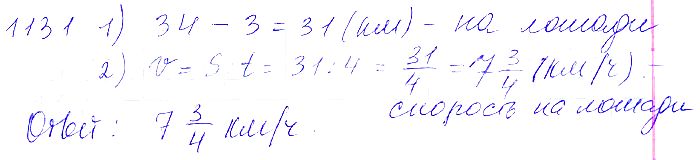 1131 1) 34 - 3 = 31 (км) - на лошади
2) v = S : t = 31 : 4 = 31/4 = 7 3/4 (км/ч) -
скорость на лошади
Ответ: 7 3/4 км/ч.